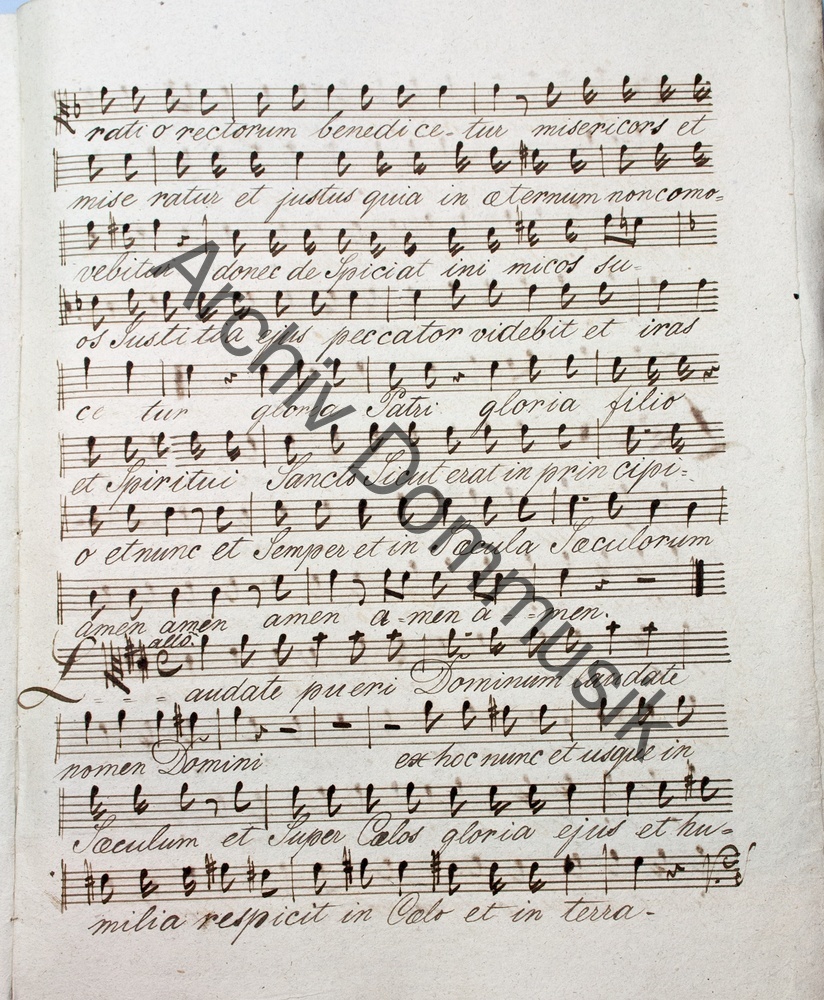 ratio rectorum benedice-tur misericors et
mise ratur et justus quia in æternum non como=
vebitur donec deSpiciat ini micos su-
os Justitia ejus peccator videbit et iras
ce tur gloria Patri gloria filio
et Spiritui Sancto Sicut erat in principi=
o et nunc et Semper et in Sæcula Sæculorum
amen amen amen a-men a-men.
allo.
Laudate pueri Dominum laudate
nomen Domini ex hoc nunc et usque in
Sæculum et Super Cœlos gloria ejus et hu=
milia respicit in Cœlo et in terra-
Archiv Dommusik